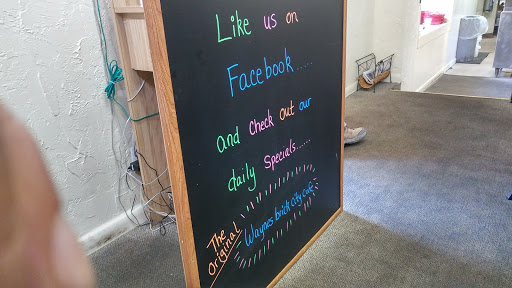 Like us on
Facebook.....
and check out our
daily Specials......
The
Original
Waynes brick City Cafe